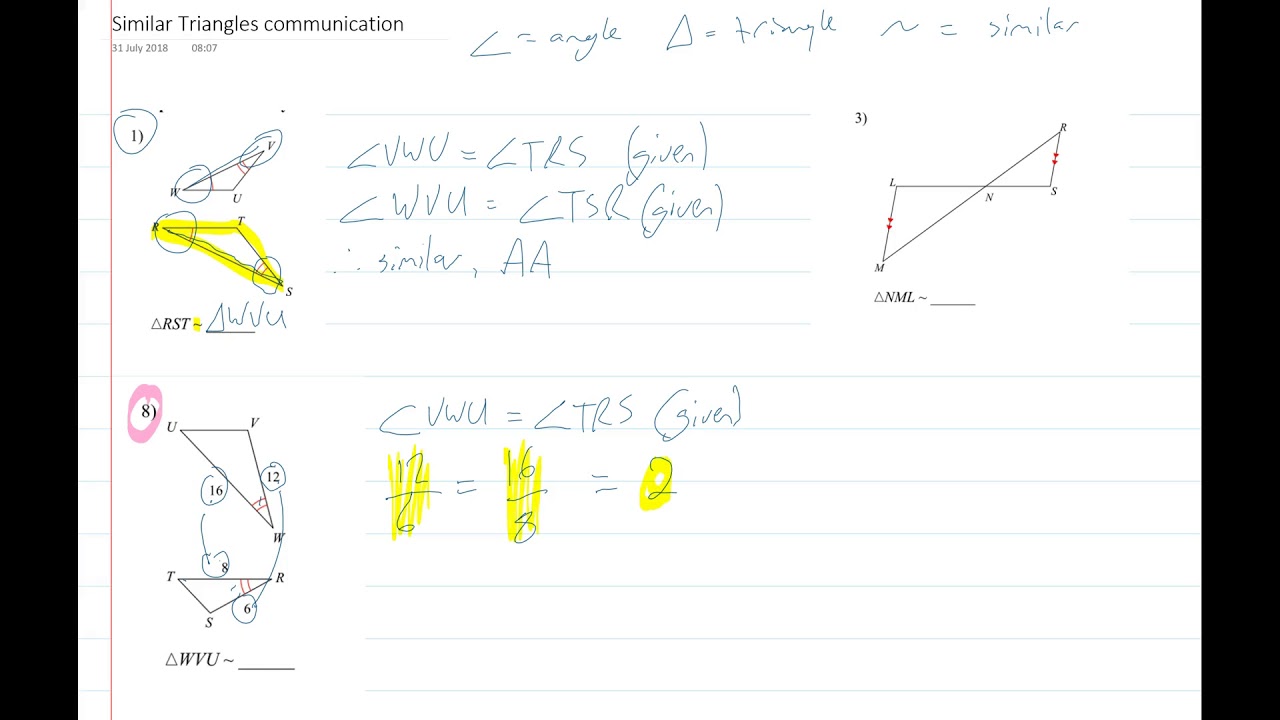 Similar Triangles communication
31 July 2018 08:07
∠ = angle Δ = triangle ~ = similar
1)
V
W
U
R
T
S
△RST ~ ΔWVU
∠VWU = ∠TRS (given)
∠WVU = ∠TSR (given)
∴ similar, AA
3)
R
L
S
N
M
△NML ~ ______
8)
U
V
16
12
W
8
T
R
6
S
△WVU ~ ______
∠VWU = ∠TRS (given)
12/6 = 16/8 = 2